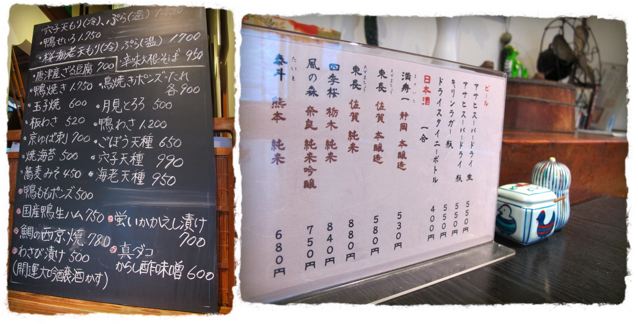 ・穴子天もり(冷)、ぶっかけ(温)
・鴨せいろ 1.750
・桜海老天もり(冷)ぶっかけ(温) 1700
・唐津産ざる豆腐 700
・辛味大根そば 950
・鴨焼き
・鳥焼き(ポンズ・たれ 各900
・玉子焼 600
・月見とろろ 500
・板わさ 520
・鴨わさ 1.200
・京ゆば刺 700
・ごぼう天種 650
・焼海苔 500
・穴子天種 990
・蕎麦みそ 450
・海老天種 950
鴨ももポンズ 500
国産鴨生ハム 750
蛍いかかえし漬け 700
鯛の西京焼 780
真ダコからし酢味噌 600
わさび漬け 500
(開運大吟醸酒かす)
ビール
アサヒスーパードライ 生 550円
アサヒスーパードライ 瓶 550円
キリンラガー 瓶 550円
ドライスタイニーボトル 400円
日本酒 一合
満寿一 静岡 本醸造 530円
東長 佐賀 本醸造 580円
東長 佐賀 純米 880円
四季桜 栃木 純米 840円
風の森 奈良 純米吟醸 750円
泰斗 熊本 純米 680円